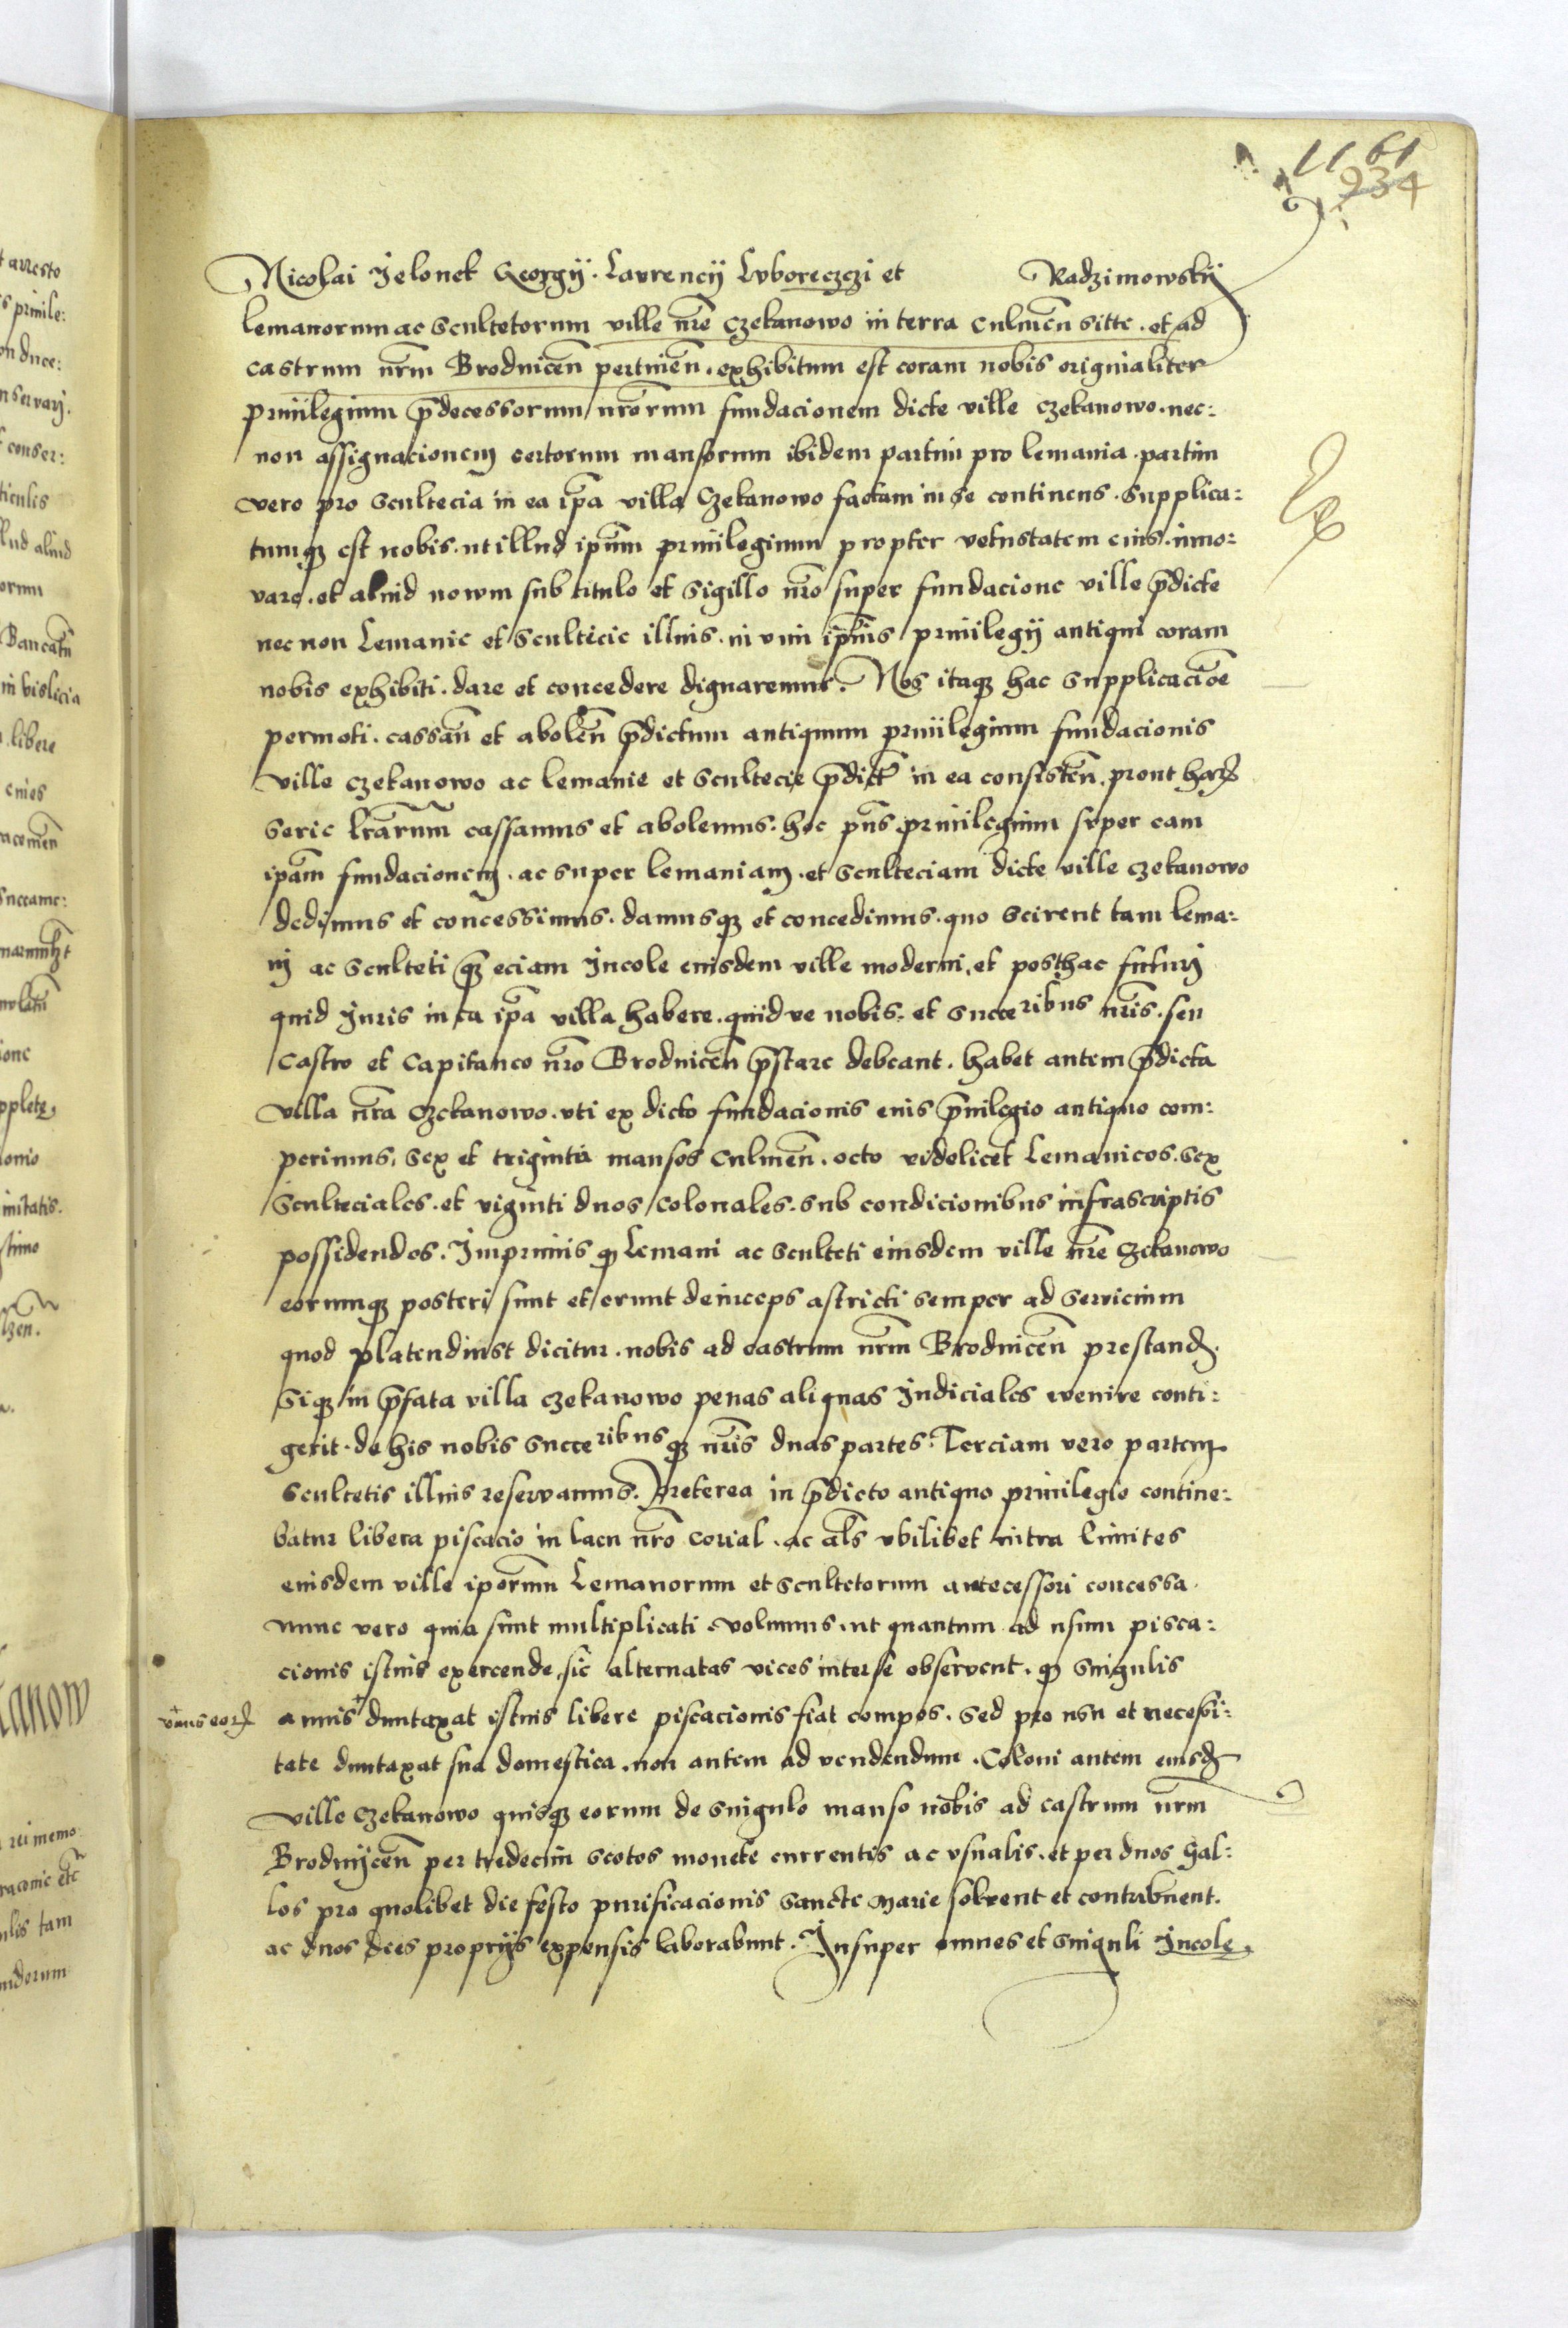 1161
934
Nicolai Jelonek Georgij. Laurencij Luboreczczi et Radzimowskij
lemanorum ac scultetorum ville nr̄e Czekanowo in terra Culmeñ sitte. et ad
castrum nr̄m Brodniceñ pertineñ. exhibitum est coram nobis originaliter
priuilegium p̄decessorum nr̄orum fundacionem dicte ville Czekanowo. nec:
non assignacionem certorum mansorum ibidem partim pro lemania. partim
vero pro scultecia in ea ip̄a villa Czekanowo factam in se continens. Supplica:
tumqȝ est nobis. ut illud ip̄um priuilegium propter vetustatem eius. inno:
vare. et aliud nowm sub titulo et sigillo nr̄o super fundacione ville p̄dicte
nec non Lemanie et Scultecie illius. in vim ip̄ius priuilegij antiqui coram
nobis exhibiti. dare et concedere dignaremur. Nos itaqȝ hac supplicacīoe
permoti. cassañ et aboleñ p̄dictum antiquum priuilegium fundacionis
ville Czekanowo ac lemanie et scultecie p̄dict̄ in ea consisteñ. prout harꝝ
serie lr̄arum cassamus et abolemus. hoc pn̄s priuilegium super eam
ip̄am fundacionem. ac super lemaniam. et sculteciam dicte ville Czekanowo
dedimus et concessimus. damusqȝ et concedimus. quo scirent tam lema:
nj ac sculteti qȝ eciam Jncole eiusdem ville moderni, et posthac futurj
quid Juris in ea ip̄a villa habere. quidve nobis. et succeribus nr̄is. seu
Castro et Capitaneo nr̄o Brodniceñ p̄stare debeant. habet autem p̄dicta
villa nr̄a Czekanowo. uti ex dicto fundacionis eius p̄uilegio antiquo com:
perimus, sex et triginta mansos Culmeñ. octo videlicet Lemanicos. sex
Sculteciales. et viginti duos Colonales. sub condicionibus infrascriptis
possidendos. Jmprimis qȝ Lemani ac Sculteti eiusdem ville nr̄e Czekanowo
eorumqȝ posteri sunt et erunt deinceps astricti semper ad servicium
quod platendinst dicitur. nobis ad castrum nr̄m Brodniceñ prestandꝝ.
Siqȝ in p̄fata villa Czekanowo penas aliquas Judiciales evenire conti:
gerit. de his nobis succeribusqȝ nr̄is duas partes. Terciam vero partem
Scultetis illius reservamus. Preterea in p̄dicto antiquo priuilegio contine:
batur libera piscacio in lacu nr̄o Corial. ac al̄s ubilibet intra limites
eiusdem ville ip̄orum Lemanorum et Scultetorum antecessori concessa.
nunc vero quia sunt multiplicati. volumus. ut quantum ad usum pisca:
cionis istius exercende, sic alternatas vices inter se observent. qȝ singulis
vnus eorꝝ
annis duntaxat istius libere piscacionis fiat compos. sed pro usu et necessi:
tate duntaxat sua domestica. non autem ad vendendum. Coloni autem eiusdꝝ
ville Czekanowo quisqȝ eorum de singulo manso nobis ad castrum nr̄m
Brodnijceñ per tredecim scotos monete currentis ac usualis. et per duos Gal:
los pro quolibet die festo purificacionis Sancte Marie solvent et contribuent.
ac duos dies proprijs expensis laborabunt. Jnsuper omnes et singuli Jncole,